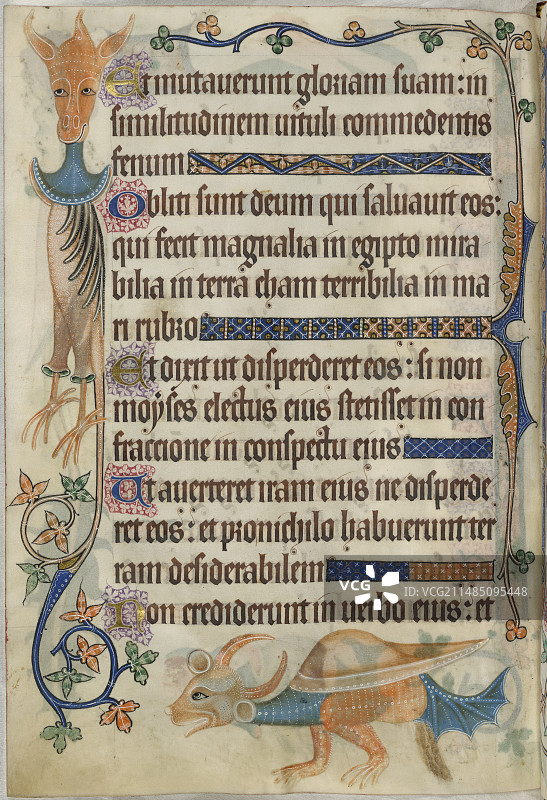 Et mutauerunt gloriam suam: in
similitudinem uituli commedentis
fenum
Obliti sunt deum qui saluauit eos:
qui fecit magnalia in egipto mira
bilia in terra cham terribilia in ma
ri rubro
Et dixit ut disperderet eos: si non
moyses electus eius stetisset in con
fraccione in conspectu eius
Ut auerteret iram eius ne disperde
ret eos: et pronichilo habuerunt ter
ram desiderabilem
Non crediderunt in uerbo eius: et
VCG
ID: VCG211485095448